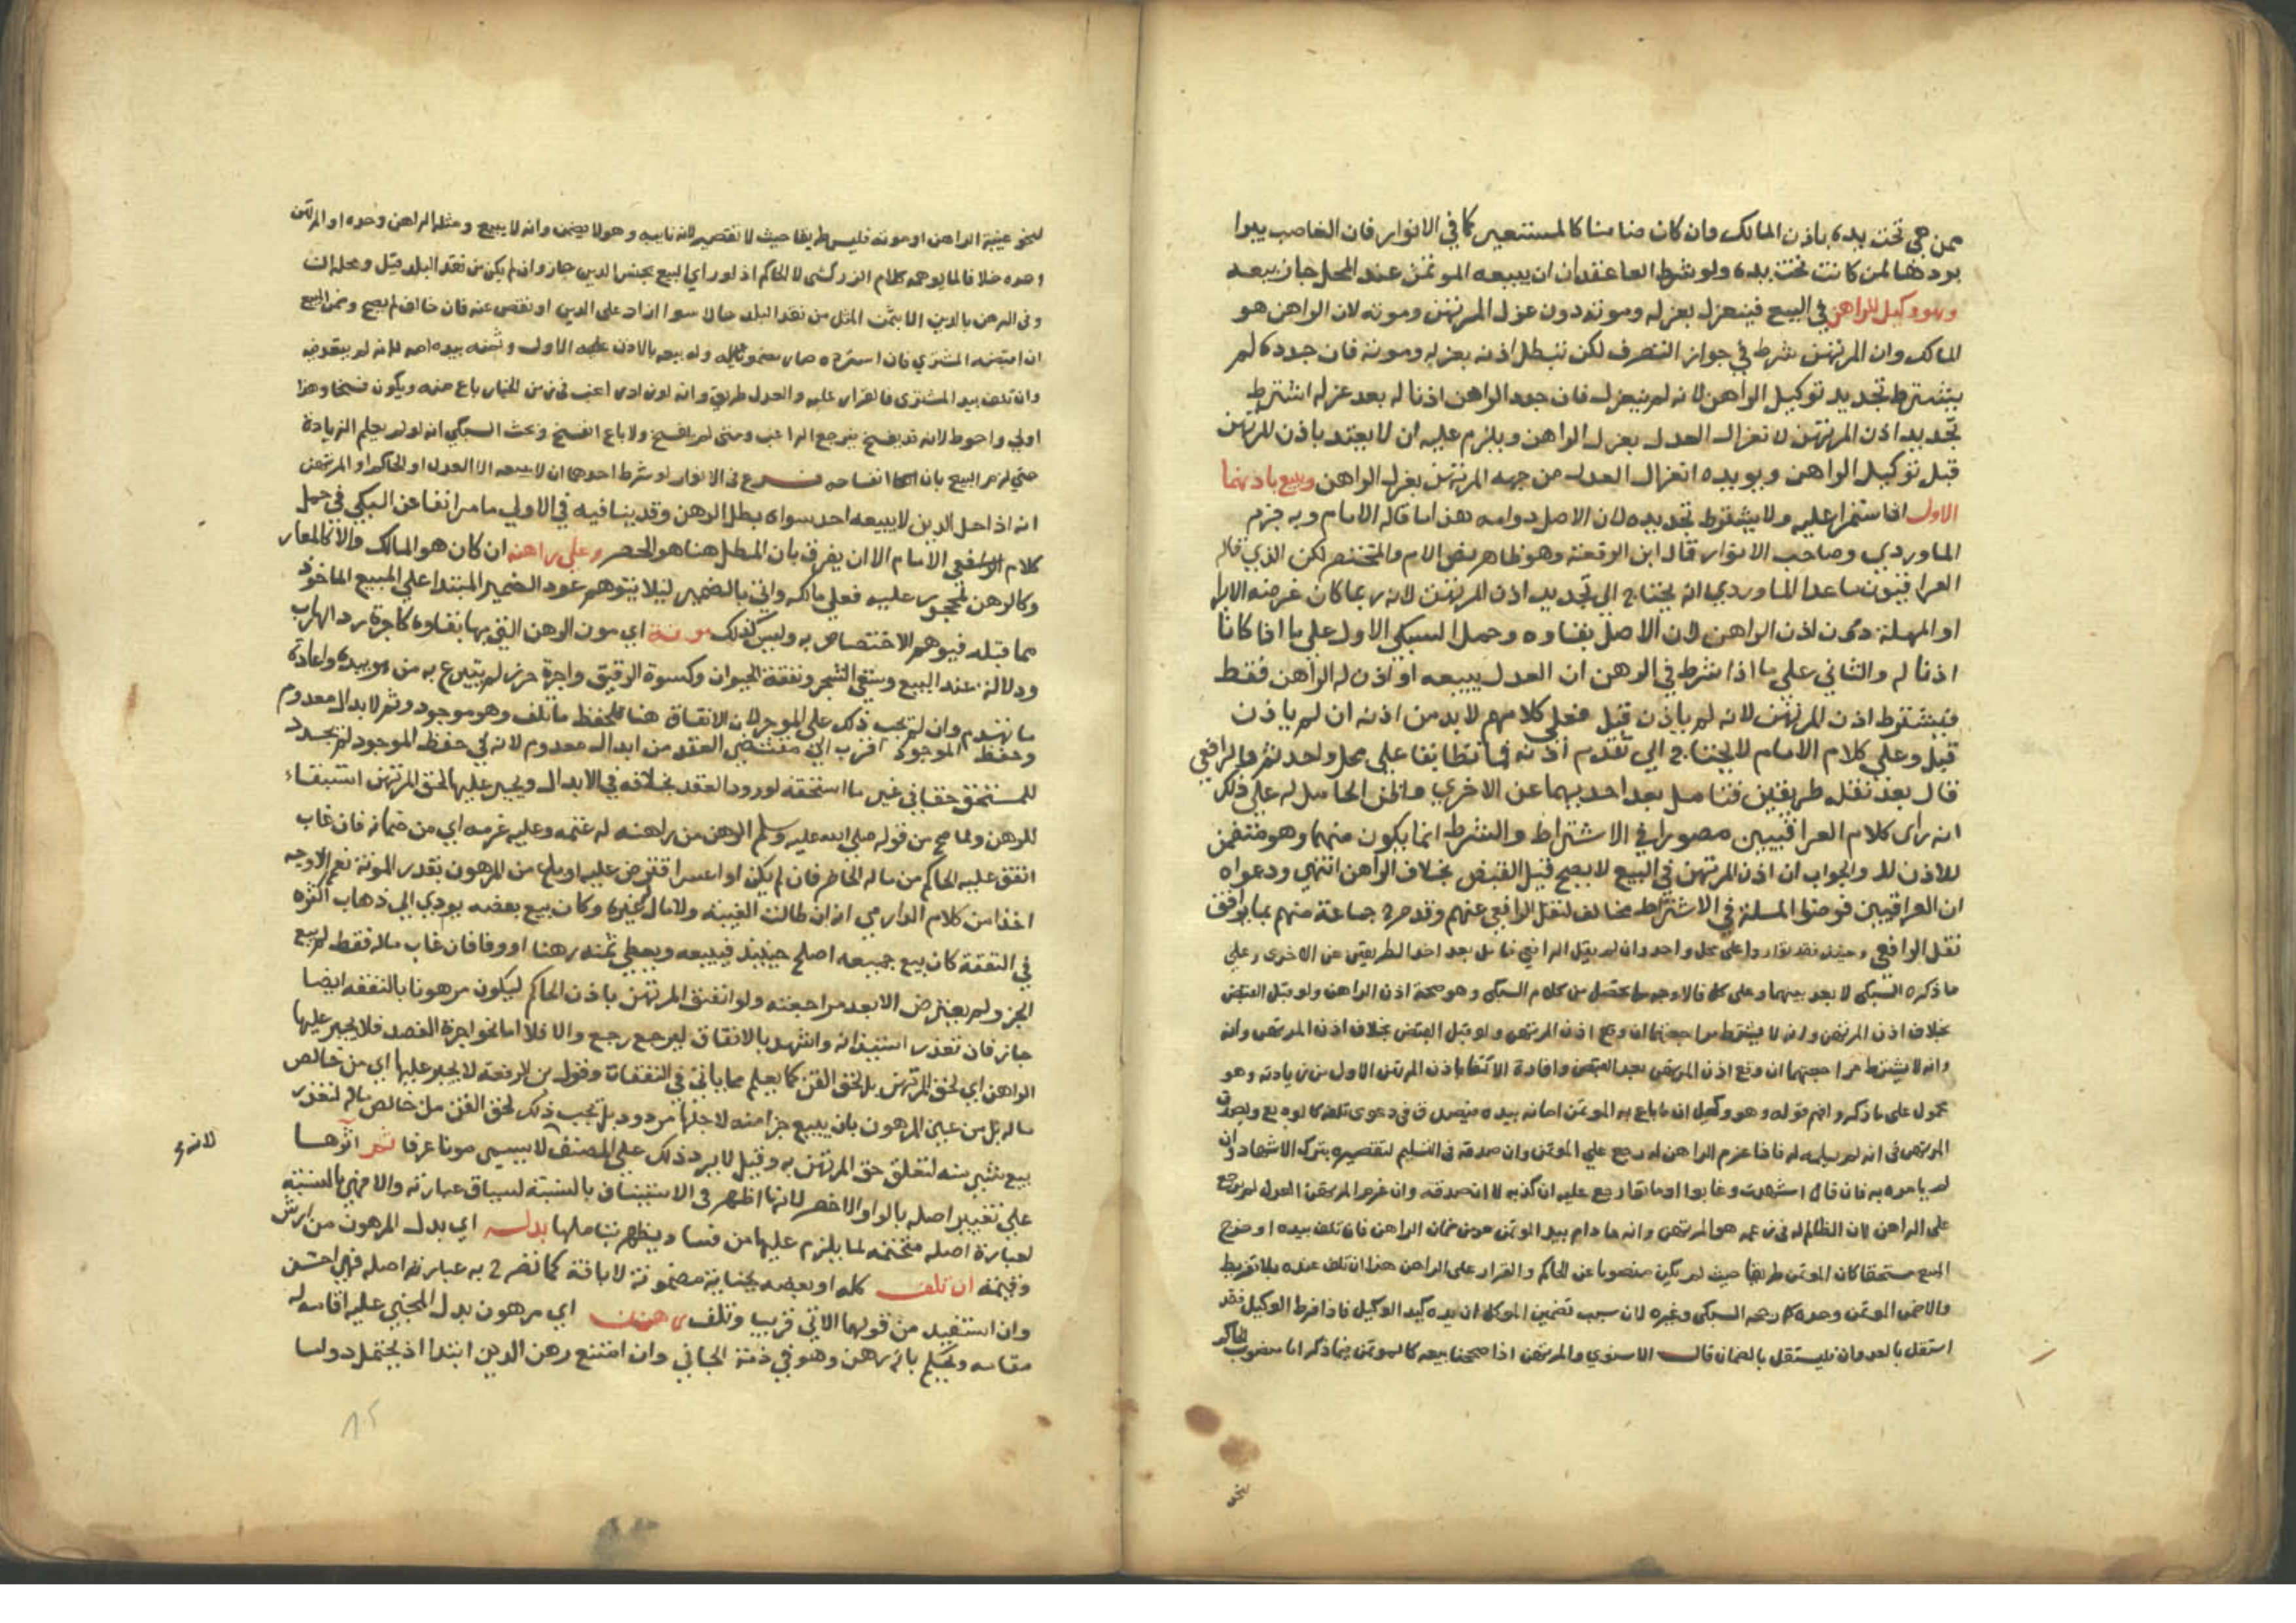 ممن هي تحت يده باذن المالك وان كان ضامنا كالمستعير كما في الانوار فان الغاصب يبرا
بردها لمن كانت تحت يده ولو شرط العاقدان ان يبيعه الموتمن عند المحل جاز بيعه
وهو وكيل للراهن في البيع فينعزل بعزله وموته دون عزل المرتهن وموته لان الراهن هو
المالك وان المرتهن شرط في جواز التصرف لكن تبطل اذنه بعزله وموته فان جدده لم
يشترط تجديد توكيل الراهن لانه لم ينعزل فان جدد الراهن اذنا له بعد عزله اشترط
تجديد اذن المرتهن لانعزال العدل بعزل الراهن ويلزم عليه ان لا يعتد باذن للمرتهن
قبل توكيل الراهن ويويده انعزال العدل من جهه المرتهن بعزل الراهن وبيع باذنهما
الاول اذا استمرا عليه ولا يشترط تجديده لان الاصل دوامه هذا ما قاله الامام وبه جزم
الماوردي وصاحب الانوار قال ابن الرفعة وهو ظاهر نص الام والمختصر لكن الذي قاله
العراقيون ما عدا الماوردي انه يحتاج الي تجديد اذن المرتهن لانه ربما كان غرضه الابرا
او المهلة دون اذن الراهن لان الاصل بقاوه وحمل السبكي الاول علي ما اذا كانا
اذنا له والثاني علي ما اذا شرط في الرهن ان العدل يبيعه او اذن له الراهن فقط
فيشترط اذن المرتهن لانه لم ياذن قبل فعلي كلامهم لا بد من اذنه ان لم ياذن
قبل وعلي كلام الامام لا يحتاج الي تقدم اذنه فما تطابقا علي محل واحد ثم والرافعي
قال بعد نقله طريقين فتامل بعد احديهما عن الاخري وكان الحامل له علي ذلك
انه راى كلام العراقيين مصورا في الاشتراط والشرط انما يكون منهما وهو متضمن
للاذن له والجواب ان اذن المرتهن في البيع لا يصح قبل القبض بخلاف الراهن انتهي ودعواه
ان العراقيين فرضوا المسلة في الاشتراط مخالف لنقل الرافعي عنهم وقد صرح جماعة منهم بما يوافق
نقل الرافعي وحينئذ فقد تواردوا علي محل واحد وان لم يقل الرافعي فتامل بعد احد الطريقين عن الاخرى وعلي
ما ذكره السبكي لا بعد بينهما وعلى كل فالاوجه ما يحصل من كلام السبكي وهو صحة اذن الراهن ولو قبل القبض
بخلاف اذن المرتهن وانه لا يشترط مراجعتهما ان وقع اذن المرتهن ولو قبل القبض بخلاف اذن المرتهن وانه
وانه لا يشترط مراجعتهما ان وقع اذن المرتهن بعد القبض وافادة الاكتفا باذن المرتهن الاول من زيادته وهو
محمول على ما ذكر وافهم قوله وهو وكيل ان ما باع به الموتمن امانه بيده فيصدق في دعوى تلفه كالوديع ويصدق
المرتهن في انه لم يسلمه له فاذا غرم الراهن له رجع علي الموتمن وان صدقه في التسليم لتقصيره بترك الاشهاد وان
لم يامره به فان قال اشهدت وغابوا او ماتوا رجع عليه ان كذبه لا ان صدقه وان غرم المرتهن العدل لم يرجع
على الراهن لان الظالم له في زعمه هو المرتهن وانه ما دام بيد الموتمن هو من ضمان الراهن فان تلف بيده او خرج
المبيع مستحقا كان الموتمن طريقا حيث لم يكن منصوبا عن الحاكم والقرار على الراهن هذا ان تلف عنده بلا تفريط
والا ضمن الموتمن وحده كما رجحه السبكي وغيره لان سبب تضمين الموكل ان يده كيد الوكيل فاذا فرط الوكيل فقد
استقل بالعدوان فليستقل بالضمان قال الاسنوي والمرتهن اذا صححنا بيعه كالموتمن فيما ذكر اما منصوب الحاكم
لنحو
لنحو غيبة الراهن او موته فليس طريقا حيث لا تقصير لانه نايبه وهو لا يضمن وانه لا يبيع ومثله الراهن وحده او المرتهن
وحده خلافا لما يوهمه كلام الزركشى لا الحاكم اذ لو راي البيع بجنس الدين جاز وان لم يكن من نقد البلد قبل ومحله ان
وفى الرهن بالدين الا بثمن المثل من نقد البلد حالا سوا ازاد على الدين او نقص عنه فان خالف لم يصح وضمن المبيع
ان اقبضه المشتري فان استرده صار مضمونا عليه وله بيعه بالاذن الاول وثمنه بيده امانه لانه لم يتعد فيه
وان تلف بيد المشترى فالقرار عليه والعدل طريق وانه لو زاد راغب في زمن الخيار باع منه ويكون فسخا وهذا
اولي واحوط لانه قد يفسخ فيرجع الراغب ومتى لم يفسخ ولا باع انفسخ وبحث السبكي انه لو لم يعلم الزيادة
حتي لزم البيع بان انفساخه فرع في الانوار لو شرط احدهما ان لا يبيعه الا العدل او الحاكم او المرتهن
انه اذا حل الدين لا يبيعه احد سواه بطل الرهن وقد ينافيه في الاولي ما مر انفا عن السبكي في حمل
كلام الرافعي الامام الا ان يفرق بان المبطل هنا هو الحصر وعلي راهن ان كان هو المالك والا كالمعار
وكالرهن لمحجور عليه فعلي مالكه واتى بالضمير ليلا يتوهم عود الضمير المبتدا علي المبيع الماخوذ
مما قبله فيوهم الاختصاص به وليس كذلك مونة اي مون الرهن التي بها بقاوه كاجرة رد الهارب
ودلالة عند البيع وسقي الشجر ونفقة الحيوان وكسوة الرقيق واجرة حرز لم يتبرع به من هو بيده واعادة
ما تهدم وان لم تجب ذلك علي الموجر لان الانفاق هنا لحفظ ما تلف وهو موجود وثم لابدال معدوم
وحفظ الموجود اقرب الي مقتضي العقد من ابدال معدوم لانه في حفظ الموجود لم يجدد
للمستحق حقا في غير ما استحقه لورود العقد بخلافه في الابدال ويجبر عليها لحق المرتهن استبقاء
للرهن ولما صح من قوله صلي الله عليه وسلم الرهن من راهنه له غنمه وعليه غرمه اي من ضمانه فان غاب
انفق عليه الحاكم من ماله الحاضر فان لم يكن او اعسر اقترض عليه او باع من المرهون بقدر المونة نعم الاوجه
اخذا من كلام الدارمي انه ان طالت الغيبة ولا مال غيره وكان بيع بعضه يودي الي ذهاب اكثره
في النفقة كان بيع جميعه اصلح حينيذ فيبيعه ويعطي ثمنه رهنا او وفا فان غاب ماله فقط لم يبع
الجز ولم يعترض الا بعد مراجعته ولو انفق المرتهن باذن الحاكم ليكون مرهونا بالنفقه ايضا
جاز فان تعذر استيذانه واشهد بالانفاق ليرجع رجع والا فلا اما نحو اجرة الفصد فلا يجبر عليها
الراهن اي لحق المرتهن بل لحق القن كما يعلم مما ياتي في النفقات وقول بن الرفعة لا يجبر عليها اي من خالص
ماله بل من عين المرهون بان يبيع جزا منه لاجلها مردود بل تجب ذلك لحق القن من خالص ماله لتعذر
بيع شي منه لتعلق حق المرتهن به وقيل لا يرد ذلك علي المصنف لا يسمى مونا عرفا ثم اثرها
لانه
علي تغيير اصله بالواو الاخصر لانها اظهر في الاستيناف بالنسبة لسياق عبارته والا فهي بالنسبة
لعبارة اصله متحتمه لما يلزم عليها من فساد يظهر بتاملها بدله اي بدل المرهون من ارش
وقيمه ان تلف كله او بعضه بجناية مضمونة لا بافة كما تضرح به عبارته اصله فهي احسن
وان استفيد من قولهما الاتي قريبا وتلف رهنه اي مرهون بدل المجني عليه اقامه له
مقامه ويحكم بانه رهن وهو في ذمة الجاني وان امتنع رهن الدين ابتدا اذ يحتمل دواما